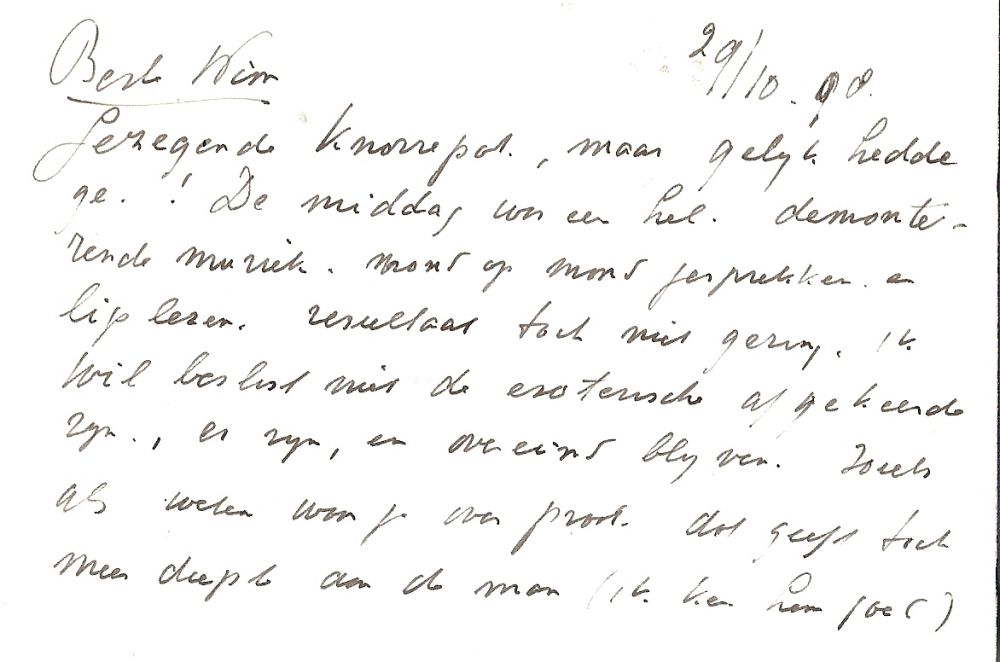 Beste Wim
29/10.98.
Gezegende Knorrepot, maar gelyk hedde
ge. ! De middag was een hel. demonte-
rende muziek. mond op mond gesprekken. en
lip lezen. resultaat toch niet gering. ik
wil beslist niet de esoterische afgekeerde
zyn., er zyn, en overeind blyven. Zoiets
als weten waar je over praat. dat geeft toch
meer diepte aan de man (ik ken hem goed)